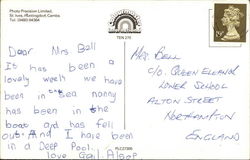 Photo Precision Limited.
St Ives, Huntingdon Cambs
Tel. (0480) 64364
TEN 275
Dear Mrs Ball
It has been a
lovely week we have
been in the sea nonny
has been in the
boat and has fell
out. And I have been
in a Deep Pool.
love Gail Alsop
PLC27305
19p
Mrs Bell
c/o. Queen Eleanor
Lower School
Alton Street
Northampton
England